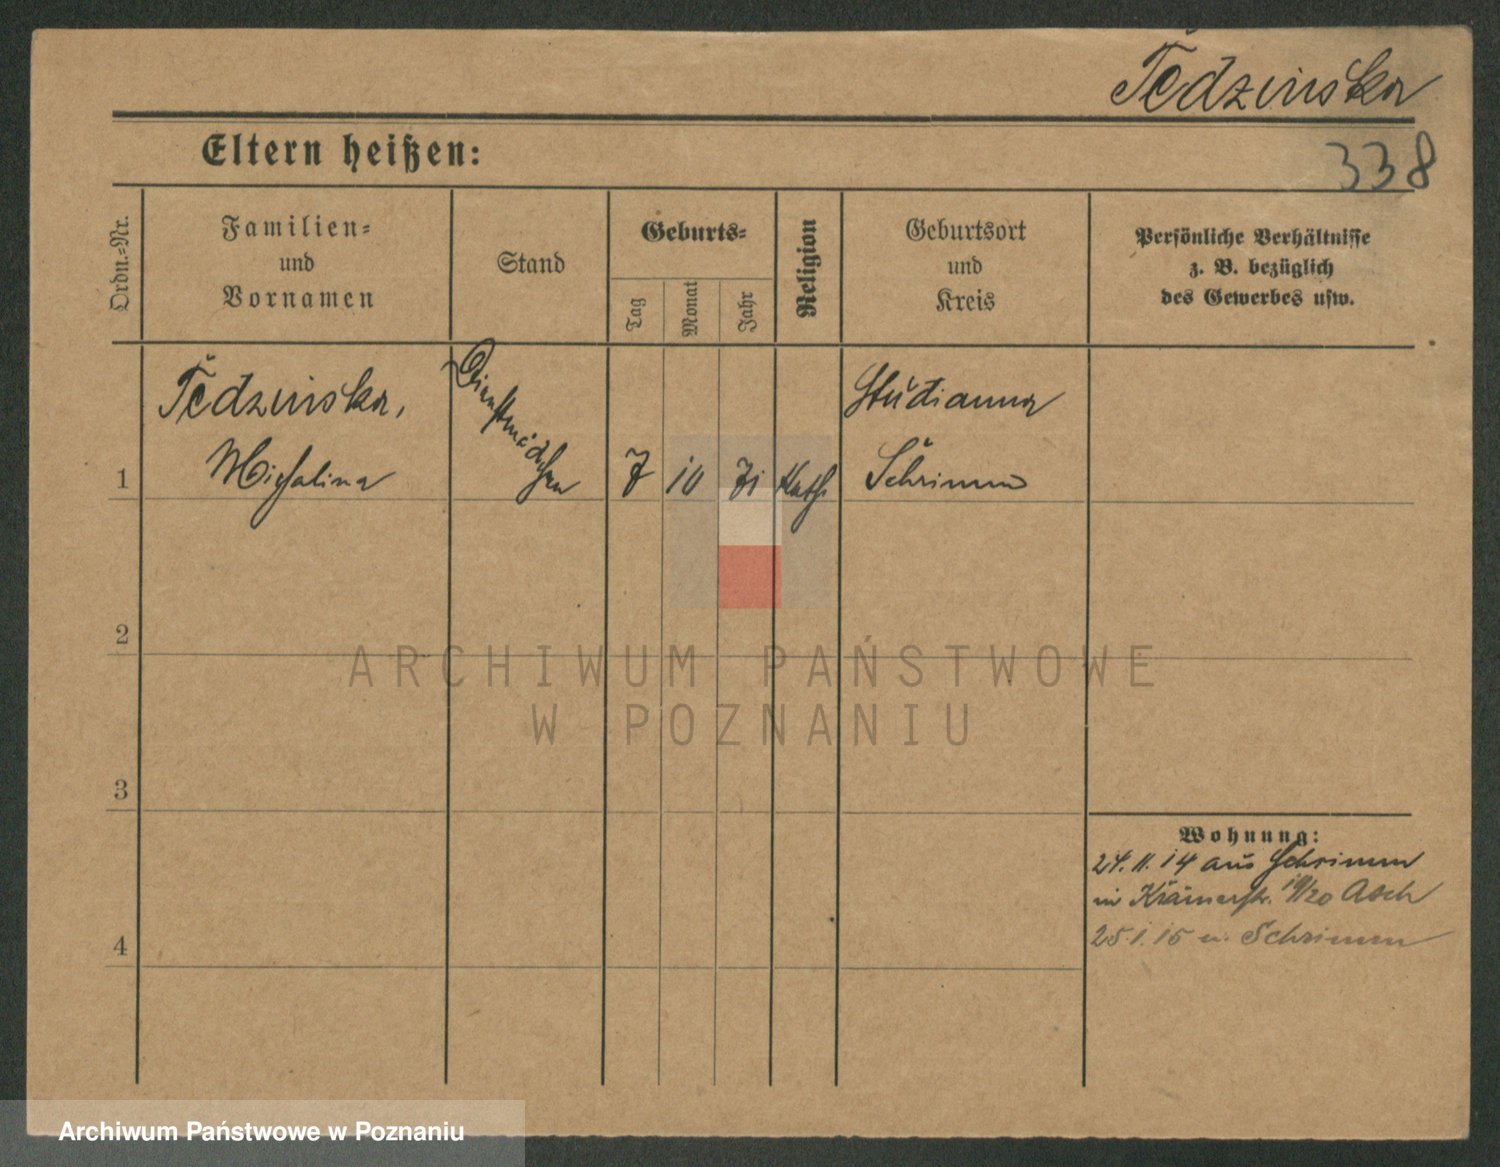 Tedzinska
Eltern heißen:
338
Ordn.-Nr.
Familien-
und
Vornamen
Stand
Geburts-
Tag
Monat
Jahr
Religion
Geburtsort
und
Kreis
Persönliche Verhältnisse
z. B. bezüglich
des Gewerbes usw.
1
Tedzinska,
Michalina
Dienstmädchen
7
10
71
Kath
Studianna
Schrimm
2
3
4
Wohnung:
24.11.14 aus Schrimm
in Krämerstr. 19/20 Asch
25.1.15 n. Schrimm
ARCHIWUM PAŃSTWOWE
W POZNANIU
Archiwum Państwowe w Poznaniu